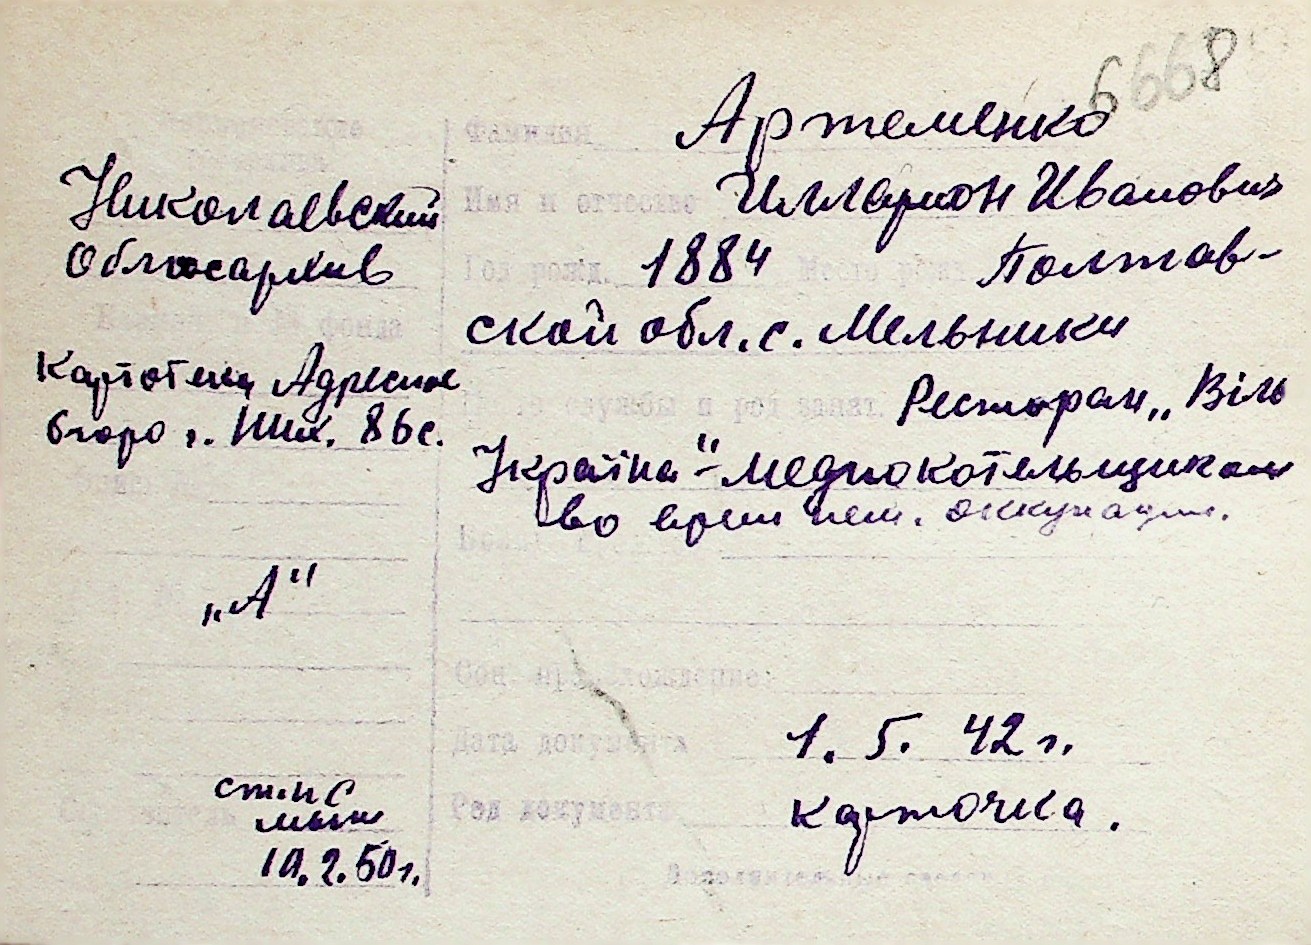 6668
Фамилия Артеменко
Имя и отчество Илларион Иванович
Николаевский
Облгосархив
Год рожд. 1884 Место рожд. Полтав-
ской обл. с. Мельники
фонда
Картотека Адресное
бюро г. Ник. 86с.
службы и род занят. Ресторан „Віль
Україна" - меднокотельщиком
во врем нем. оккупации.
„А"
Соц. происхождение:
Дата документа 1. 5. 42 г.
Род документа карточка.
10.2.50 г.